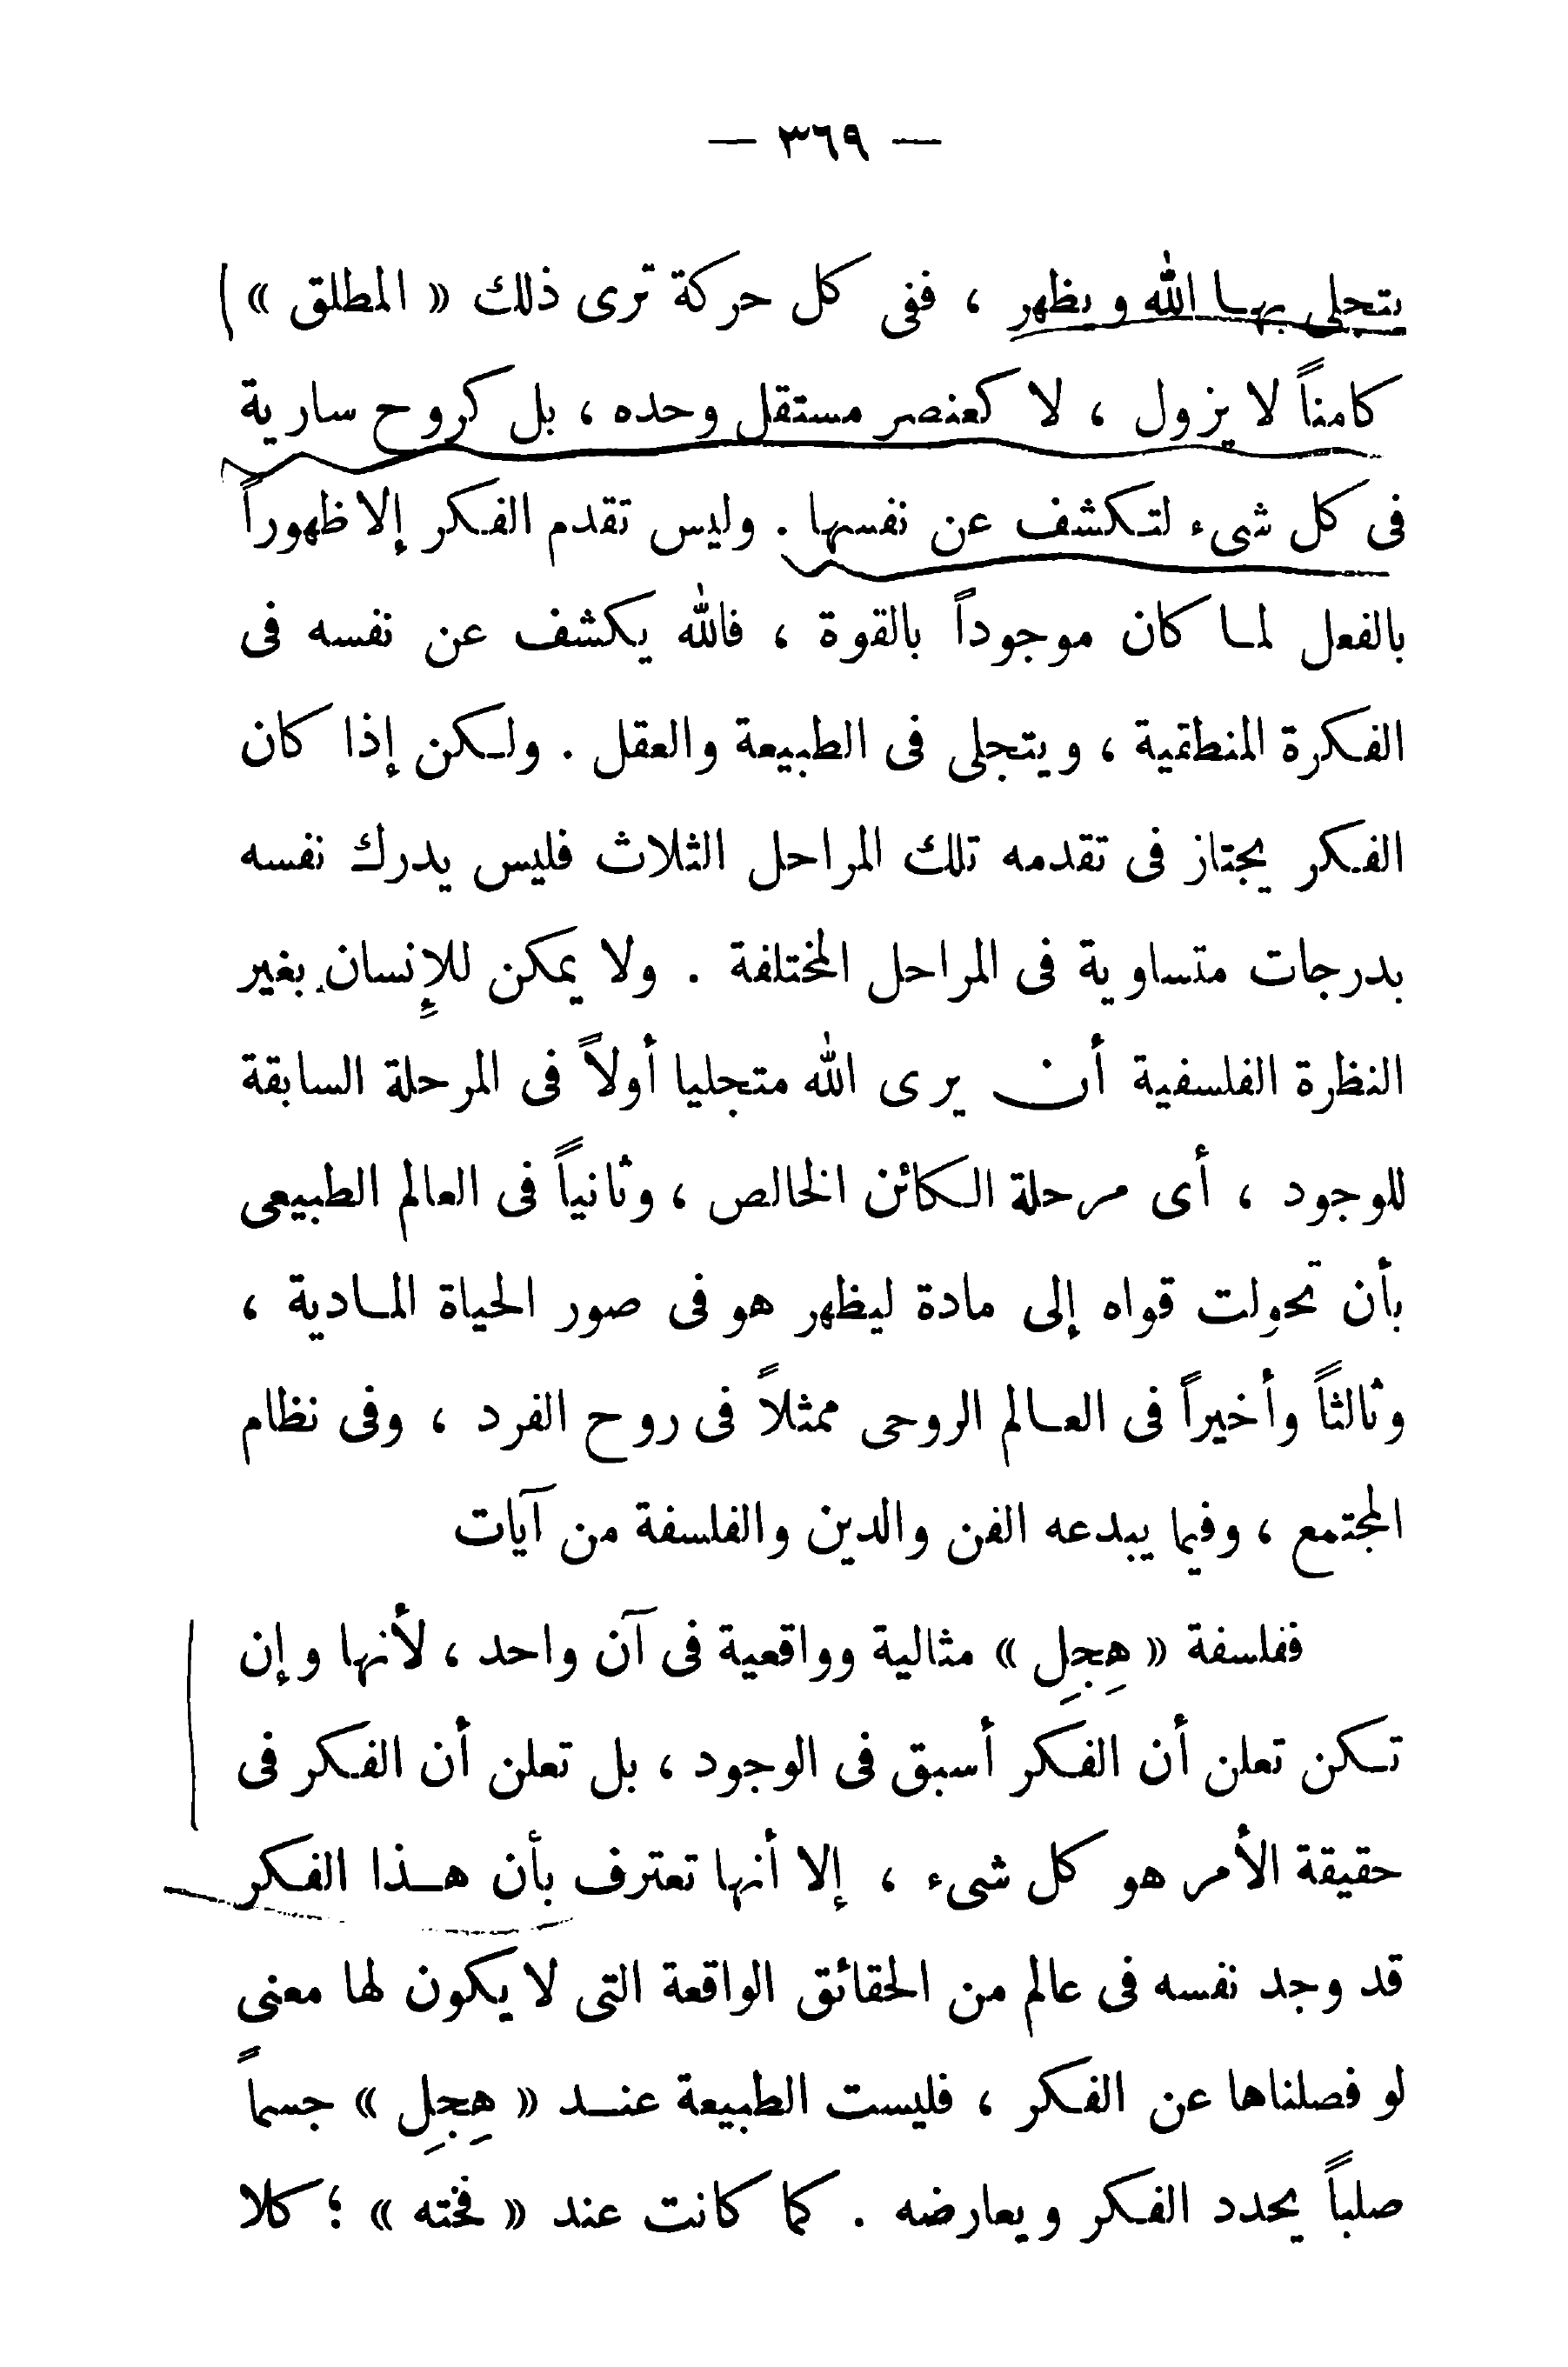 — ٣٦٩ —
يتجلى بهـا الله ويظهر ، ففى كل حركة ترى ذلك « المطلق »
كامناً لا يزول ، لا كعنصر مستقل وحده ، بل كروح سارية
فى كل شىء لتـكشف عن نفسها . وليس تقدم الفـكر إلا ظهوراً
بالفعل لمـا كان موجوداً بالقوة ، فالله يكشف عن نفسه فى
الفـكرة المنطقية ، ويتجلى فى الطبيعة والعقل . ولـكن إذا كان
الفـكر يجتاز فى تقدمه تلك المراحل الثلاث فليس يدرك نفسه
بدرجات متساوية فى المراحل المختلفة . ولا يمكن للإنسان بغير
النظرة الفلسفية أن يرى الله متجليا أولاً فى المرحلة السابقة
للوجود ، أى مرحلة الـكائن الخالص ، وثانياً فى العالم الطبيعى
بأن تحولت قواه إلى مادة ليظهر هو فى صور الحياة المـادية ،
وثالثاً وأخيراً فى العـالم الروحى ممثلاً فى روح الفرد ، وفى نظام
المجتمع ، وفيما يبدعه الفن والدين والفلسفة من آيات
ففلسفة « هِجِل » مثالية وواقعية فى آن واحد ، لأنها وإن
تـكن تعلن أن الفـكر أسبق فى الوجود ، بل تعلن أن الفـكر فى
حقيقة الأمر هو كل شىء ، إلا أنها تعترف بأن هـذا الفـكر
قد وجد نفسه فى عالم من الحقائق الواقعة التى لا يكون لها معنى
لو فصلناها عن الفـكر ، فليست الطبيعة عنـد « هِجِل » جسماً
صلباً يحدد الفـكر ويعارضه . كما كانت عند « فخته » ؛ كلا